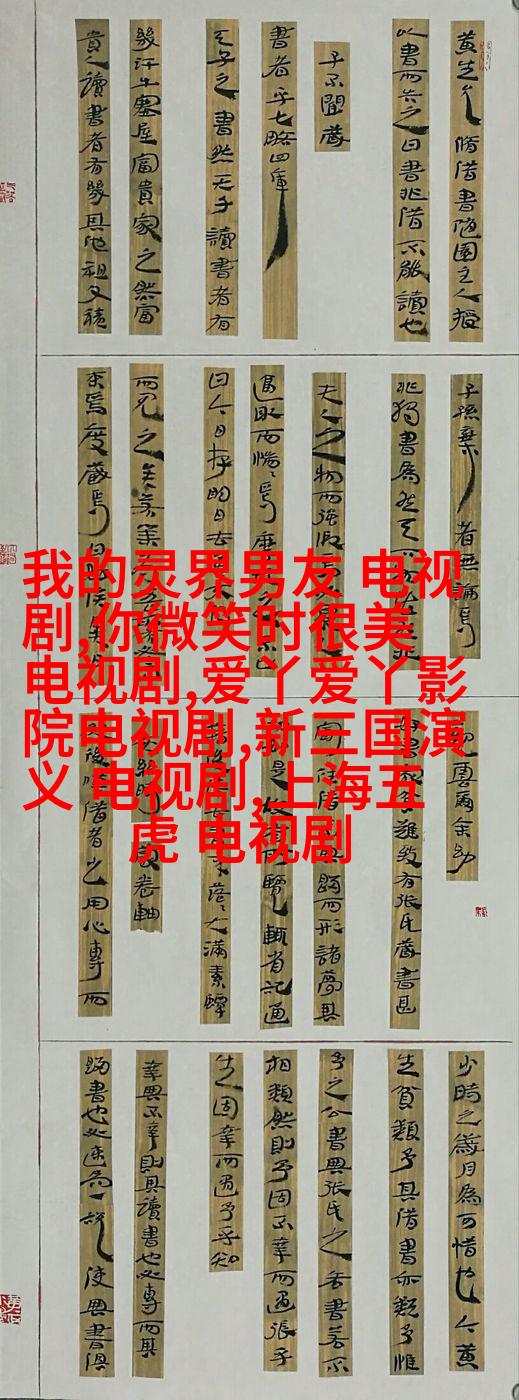 黃生允脩借書隨園主人授
以書而告之曰書非借不能讀也
子不聞藏
書者乎七略四庫
天子之書然天子讀書者有
幾汗牛塞屋富貴家之然富
貴人讀書者有幾其他祖父積
子孫棄者無論焉
非獨書為然天下
夫人之物而強假焉
逼取而惴惴焉摩
曰今日存明日去
而見之矣若業為
我的灵界男友 电视
剧,你微笑时很美
电视剧,爱丫爱丫影
院电视剧,新三国演
义 电视剧,上海五
虎 电视剧
觀云爾余幼
好書家貧難致有張氏藏書甚
富往借不與歸而形諸夢其
是故有所覽輒省記通
籍後俸去書來落落大滿素蟬
卷軸
後嘆借者之用心專而
少時之歲月為可惜也今黃
生貧類予其借書亦類予惟
予之公書與張氏之吝書若不
相類然則予固不幸而遇張乎
生固幸而遇予乎知
幸與不幸則其讀書也必專而其
歸書也必速為一說使與書俱